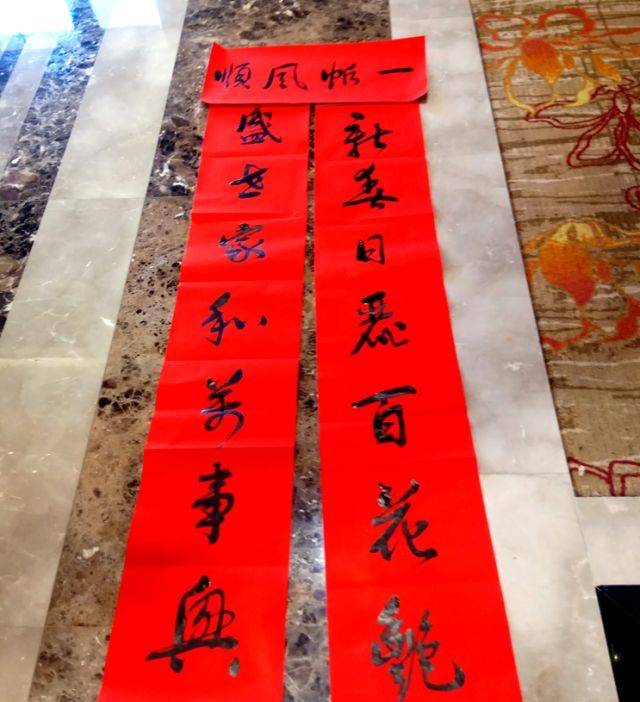 一帆风順
新春日麗百花艷
盛世家和萬事興